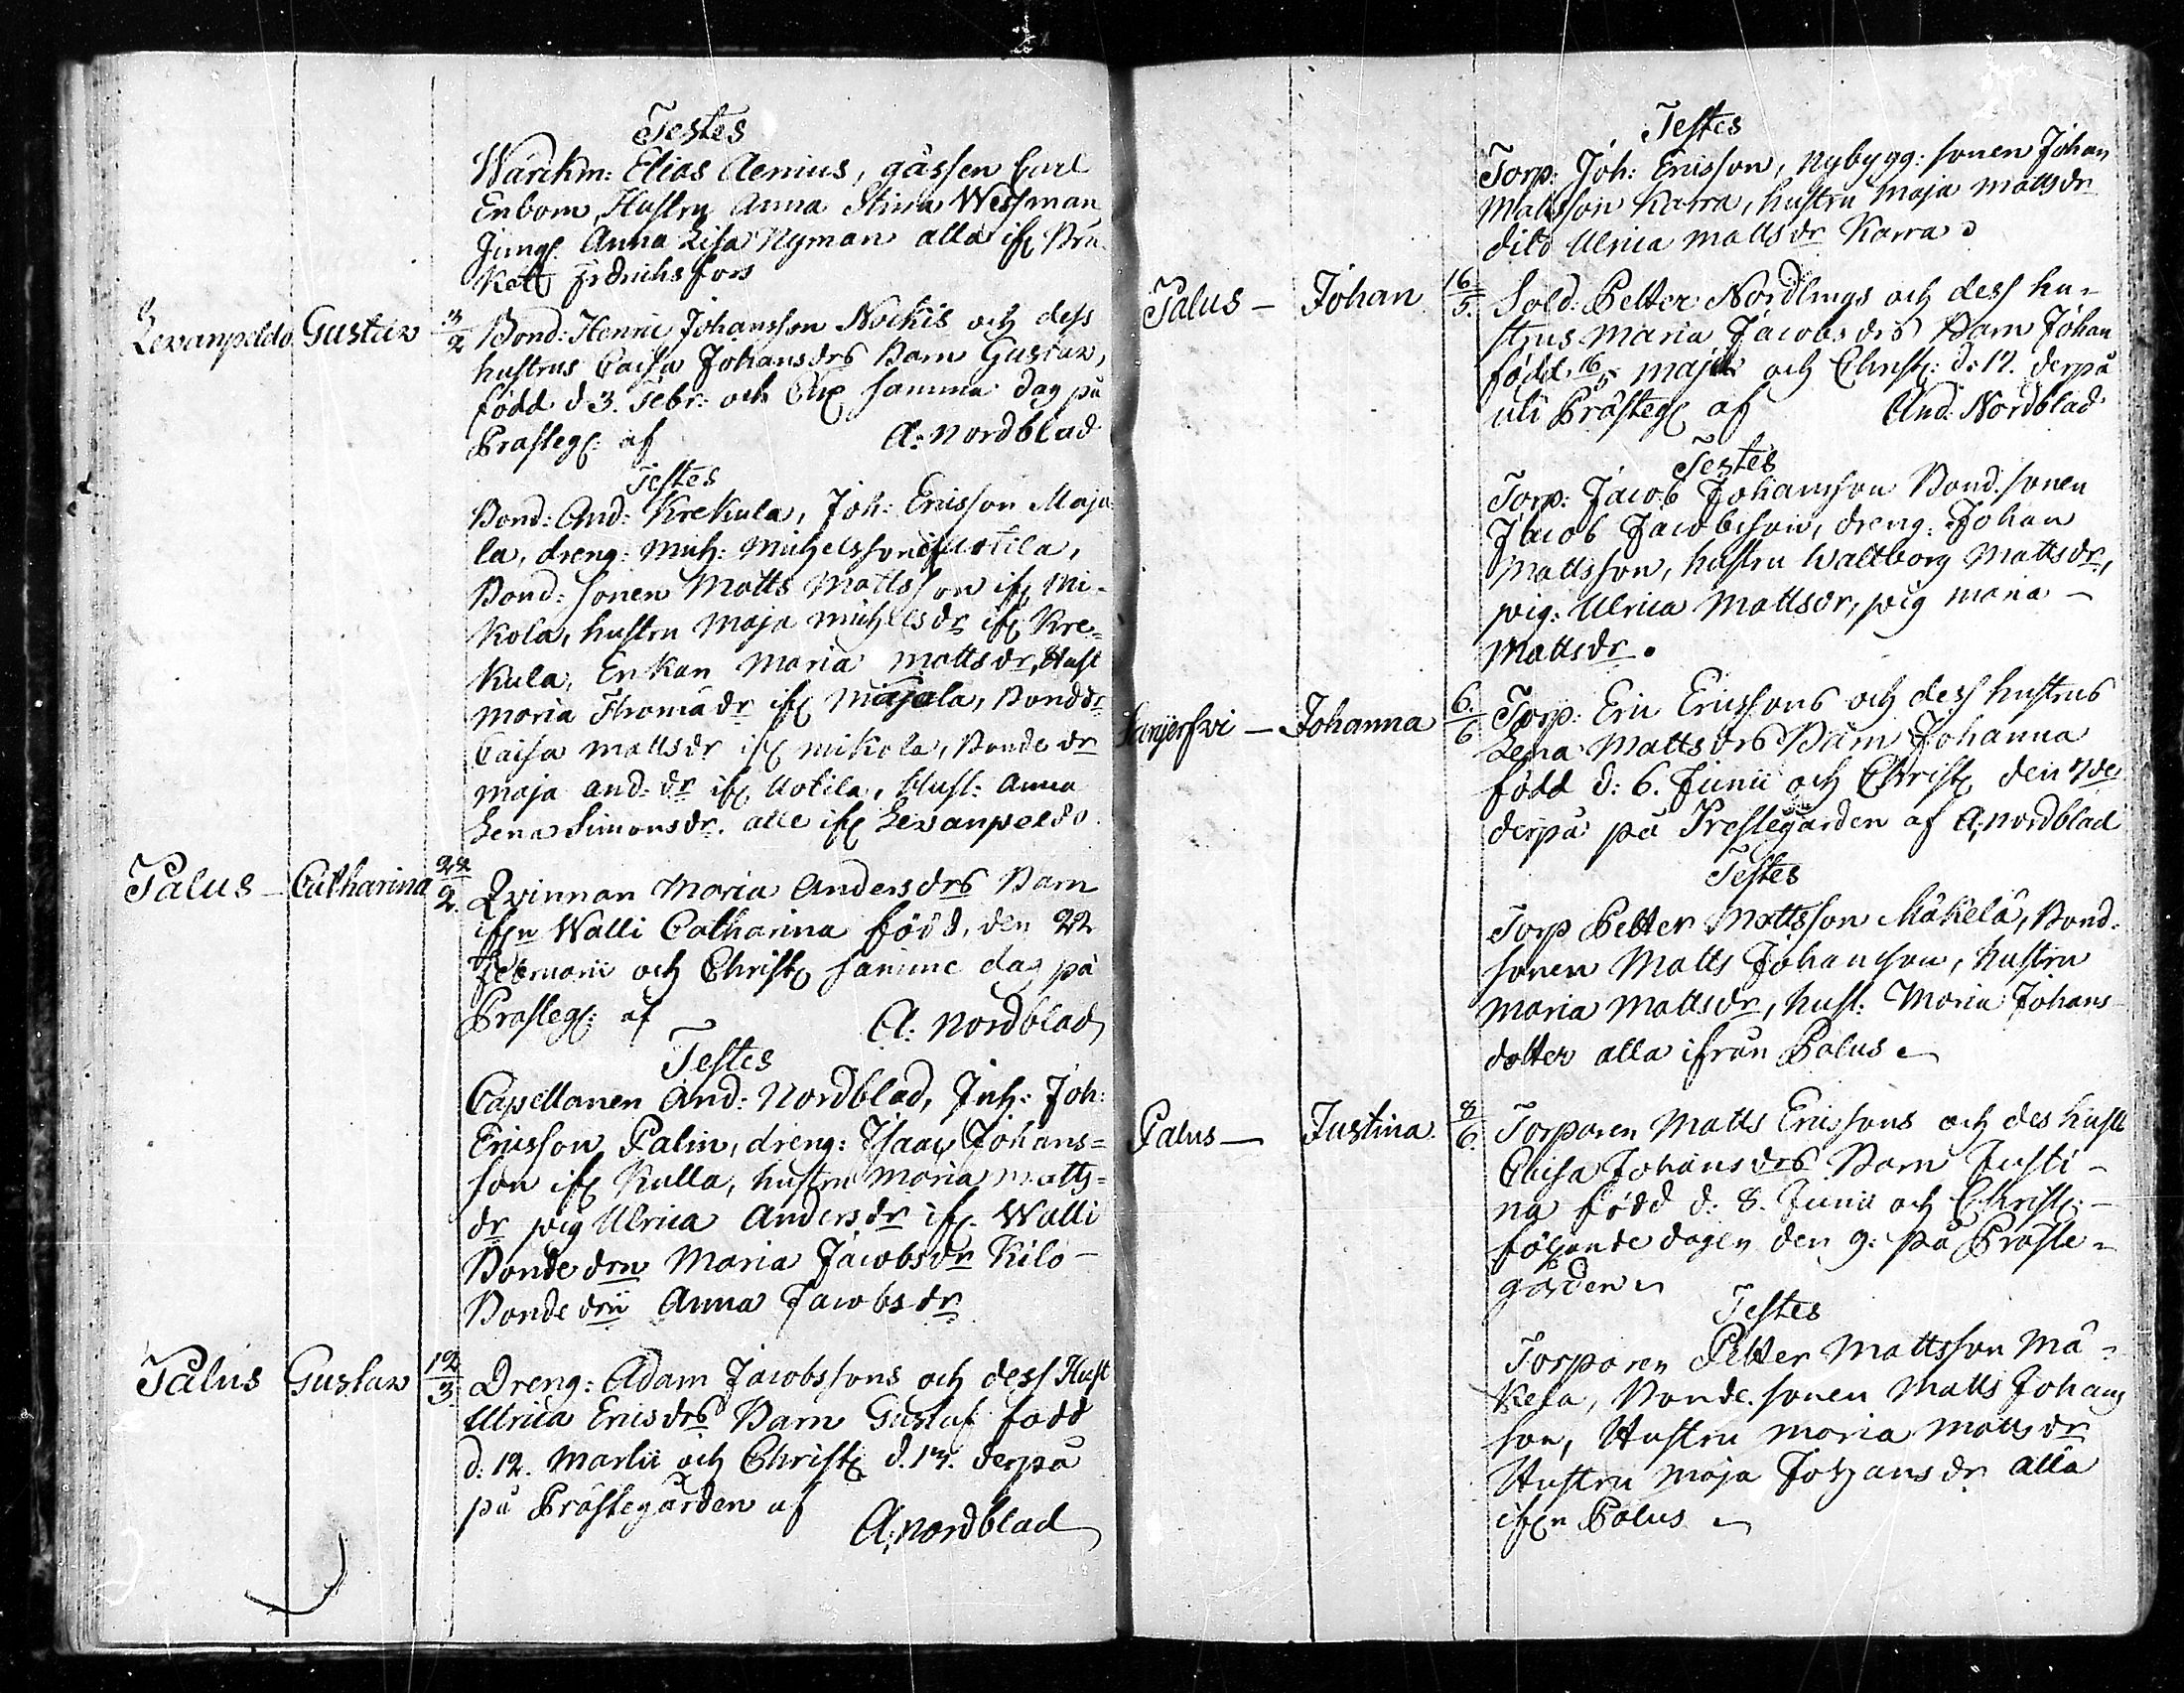 Testes
Wärckm: Elias Alenius, gässen Carl
Enbom, Hustru Anna Stina Wessman
Jungf. Anna Lisa Nyman alla ifr Bru
ket Fredrichsfors
Levanpeldo Gustav 3/2 Bond: Henric Johansson Nockis och dess
hustrus Caisa Johansdrs Barn Gustav,
född d 3. Febr: och Chr samma dag på
Prästeg: af A: Nordblad
Testes
Bond: And: Krekula, Joh: Ericsson Maja
la, dreng: Mich: Michelsson ifr Uotila,
Bond: sonen Matts Mattsson ifr Mi-
kola, hustru Maja Michelsdr ifr Kre-
kula, Enkan Maria Mattsdr, Hust
Maria Thomadr ifr Majala, Bonddr
Caisa Mattsdr ifr Mikola, Bondedr
Maja And: dr ifr Uotila, Hust: Anna
Lena Simonsdr. alle ifr Levanpeldo.
Palus - Catharina 22/2. Qvinnan Maria Andersdrs Barn
ifrn Walli Catharina född, den 22
Februarii och Christ samme dag på
Prästeg: af A: Nordblad
Testes
Capellanen And: Nordblad, Inh: Joh:
Ericsson Palin, dreng: Isaac Johans=
son ifr Kulla, hustru Maria Matts=
dr pig Ulrica Andersdr ifr. Walli
Bondedrn Maria Jacobsdr Kilo-
Bondedrn Anna Jacobsdr
Palus Gustav 12/3. Dreng: Adam Jacobssons och dess Hust
Ulrica Ericsdrs Barn Gustaf född
d. 12. Martii och Christ d. 13. derpå
på Prästegården af
A: Nordblad
Testes
Torp: Joh: Ericsson, Nybygg: sonen Johan
Mattsson Karra, hustru Maja Mattsdr
dito Ulrica Mattsdr Karra
Palus - Johan 16/5. Sold: Petter Nordlings och dess hu-
strus Maria Jacobsdrs Barn Johan
född 16/5 maji och Christ: d: 17. derpå
uti Prästeg af And: Nordblad
Testes
Torp: Jacob Johansson Bond. sonen
Jacob Jacobsson, dreng: Johan
Mattsson, hustru Waltborg Mattsdr,
pig: Ulrica Mattsdr, pig Maria -
Mattsdr.
- Johanna 6./6 Torp: Eric Ericssons och dess hustrus
Lena Mattsdrs Barn Johanna
född d: 6. Junii och Christ den 7de
derpå på Prestegården af A: Nordblad
Testes
Torp Petter Mattsson Mäkelä, Bond.
sonen Matts Johansson, hustru
Maria Mattsdr, hust: Maria Johans-
dotter alla ifrån Palus
Palus - Justina. 8/6. Torparen Matts Ericssons och des hust
Caisa Johansdrs Barn Justi-
na född d: 8. Junii och Christ: -
följande dagen den 9: på Präste-
gården
Testes
Torparen Petter Mattsson Mä-
kelä, Bonde. sonen Matts Johans
son, Hustru Maria Mattsdr
Hustru Maja Johansdr alla
ifrn Palus